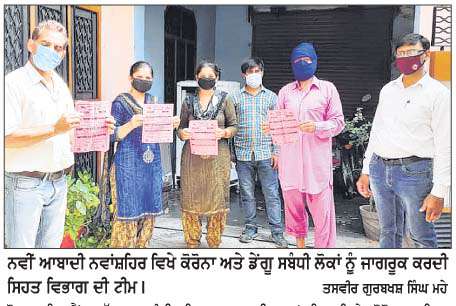 ਨਵੀਂ ਆਬਾਦੀ ਨਵਾਂਸ਼ਹਿਰ ਵਿਖੇ ਕੋਰੋਨਾ ਅਤੇ ਡੇਂਗੂ ਸਬੰਧੀ ਲੋਕਾਂ ਨੂੰ ਜਾਗਰੂਕ ਕਰਦੀ
ਸਿਹਤ ਵਿਭਾਗ ਦੀ ਟੀਮ। ਤਸਵੀਰ ਗੁਰਬਖਸ਼ ਸਿੰਘ ਮਹੇ